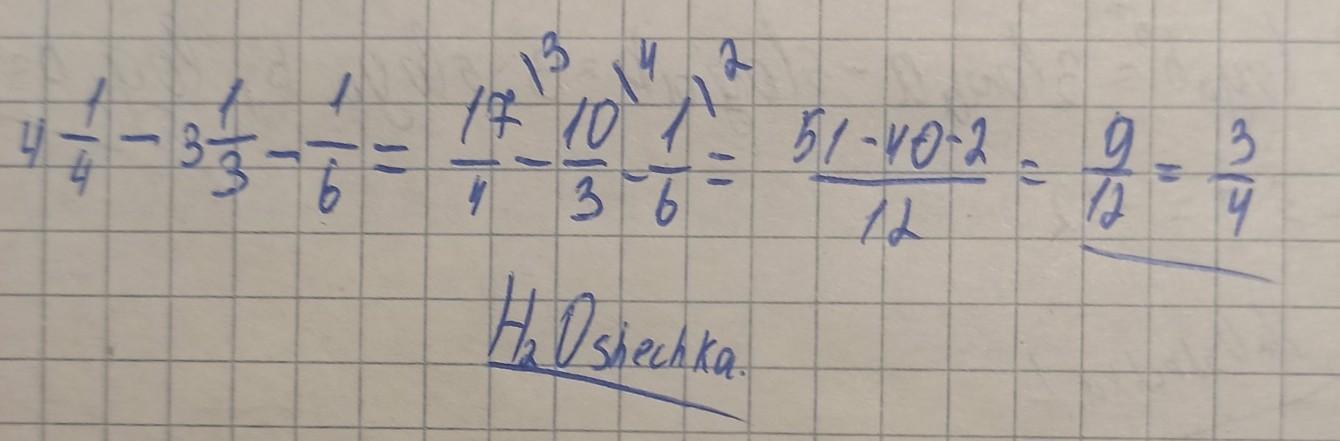 4 1/4 - 3 1/3 - 1/6 = 17\3/4 - 10\4/3 - 1\2/6 = 51-40-2/12 = 9/12 = 3/4
H₂Oshechka.